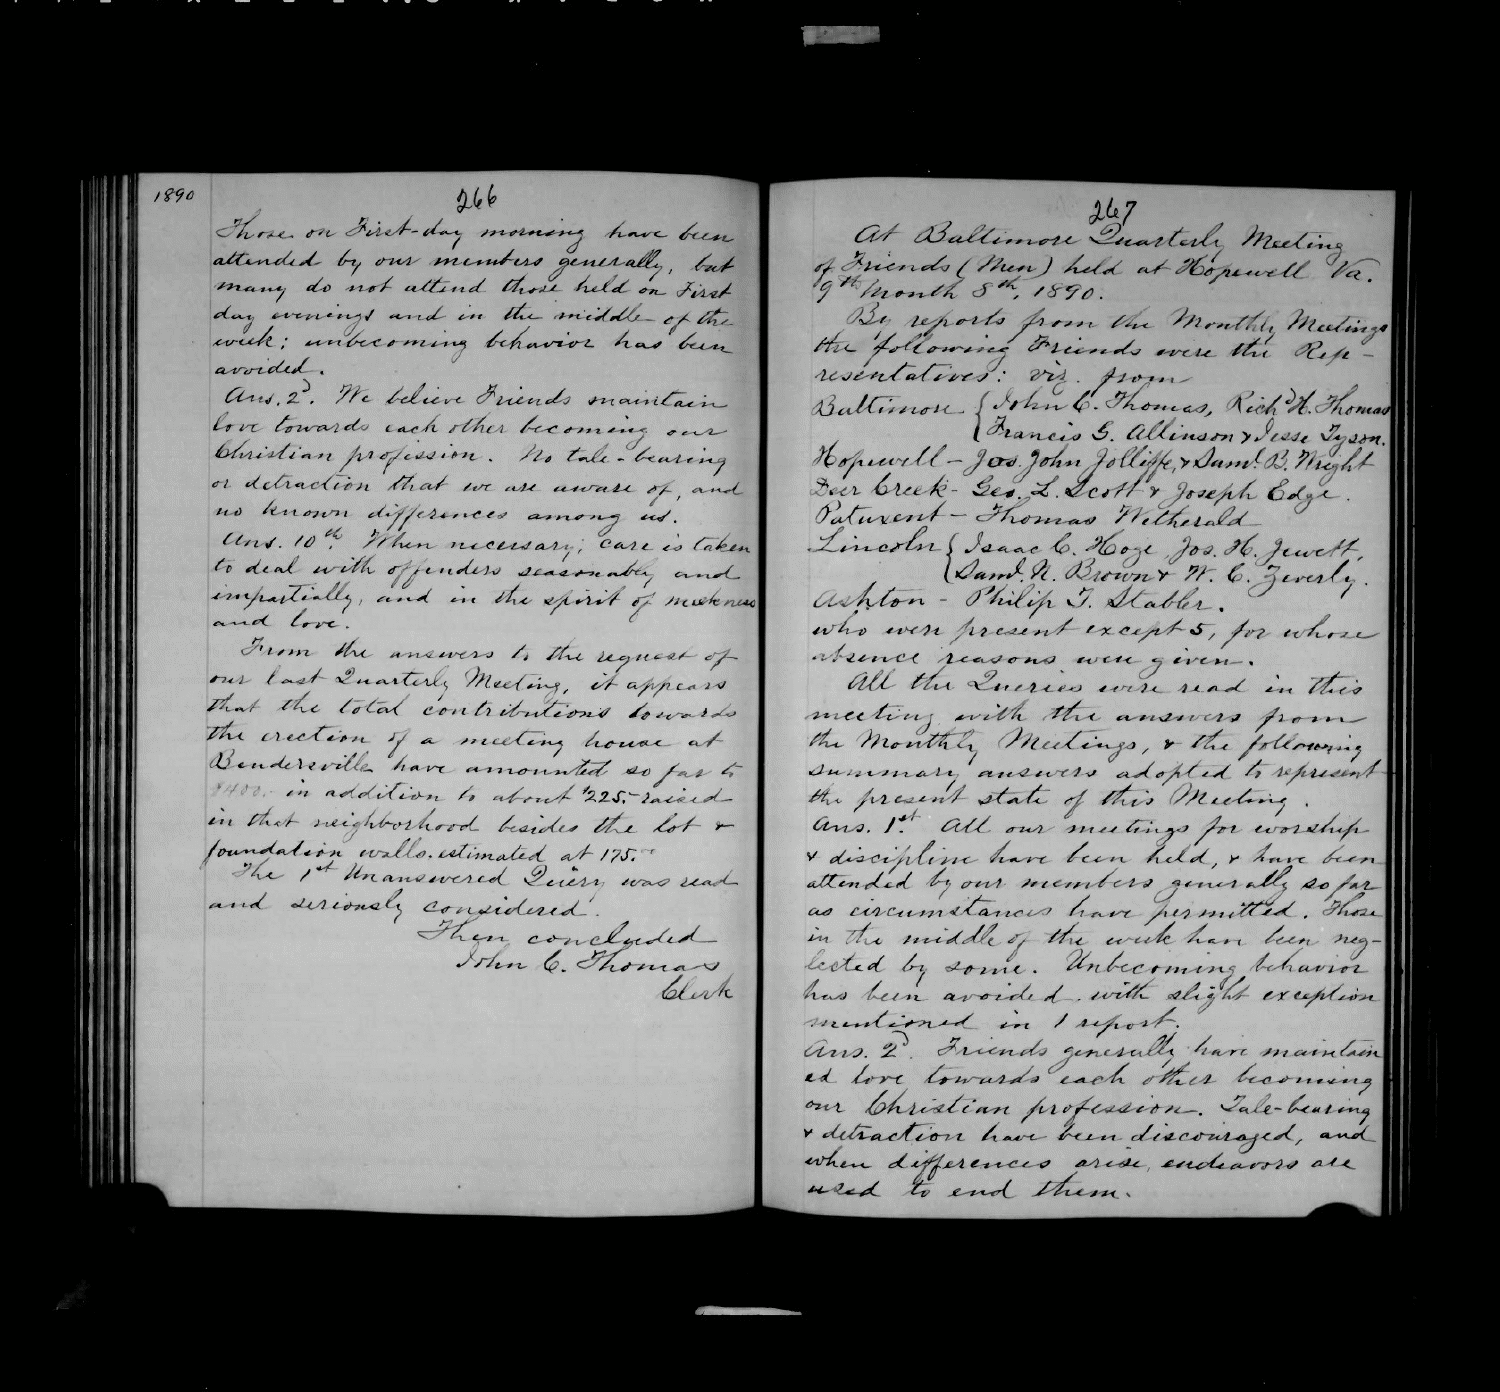 1890
266
Those on First-day morning have been
attended by our members generally, but
many do not attend those held on First
day evenings and in the middle of the
week; unbecoming behavior has been
avoided.
Ans. 2d. We believe Friends maintain
love towards each other becoming our
Christian profession. No tale-bearing
or detraction that we are aware of, and
no known differences among us.
Ans. 10th. When necessary, care is taken
to deal with offenders seasonably and
impartially, and in the spirit of meekness
and love.
From the answers to the request of
our last Quarterly Meeting, it appears
that the total contributions towards
the erection of a meeting house at
Bendersville have amounted so far to
$400.- in addition to about $225.- raised
in that neighborhood besides the lot &
foundation walls. estimated at 175.00
The 1st Unanswered Query was read
and seriously considered.
Then concluded
John C. Thomas
Clerk
267
At Baltimore Quarterly Meeting
of Friends (Men) held at Hopewell Va.
9th Month 8th, 1890.
By reports from the Monthly Meetings
the following Friends were the Rep-
resentatives: viz. from
Baltimore { John C. Thomas, Richd H. Thomas
Francis G. Allinson & Jesse Tyson.
Hopewell - Jos. John Jolliffe, & Saml. B. Wright
Deer Creek - Geo. L. Scott & Joseph Edge.
Patuxent - Thomas Wetherald
Lincoln { Isaac C. Hoge, Jos. H. Jewett,
Saml. N. Brown & W. C. Zeverly.
Ashton - Philip T. Stabler.
who were present except 5, for whose
absence reasons were given.
All the Queries were read in this
meeting with the answers from
the Monthly Meetings, & the following
summary answers adopted to represent
the present state of this Meeting.
Ans. 1st. All our meetings for worship
& discipline have been held, & have been
attended by our members generally so far
as circumstances have permitted. Those
in the middle of the week have been neg-
lected by some. Unbecoming behavior
has been avoided. with slight exception
mentioned in 1 report.
Ans. 2d. Friends generally have maintain
ed love towards each other becoming
our Christian profession. Tale-bearing
& detraction have been discouraged, and
when differences arise, endeavors are
used to end them.